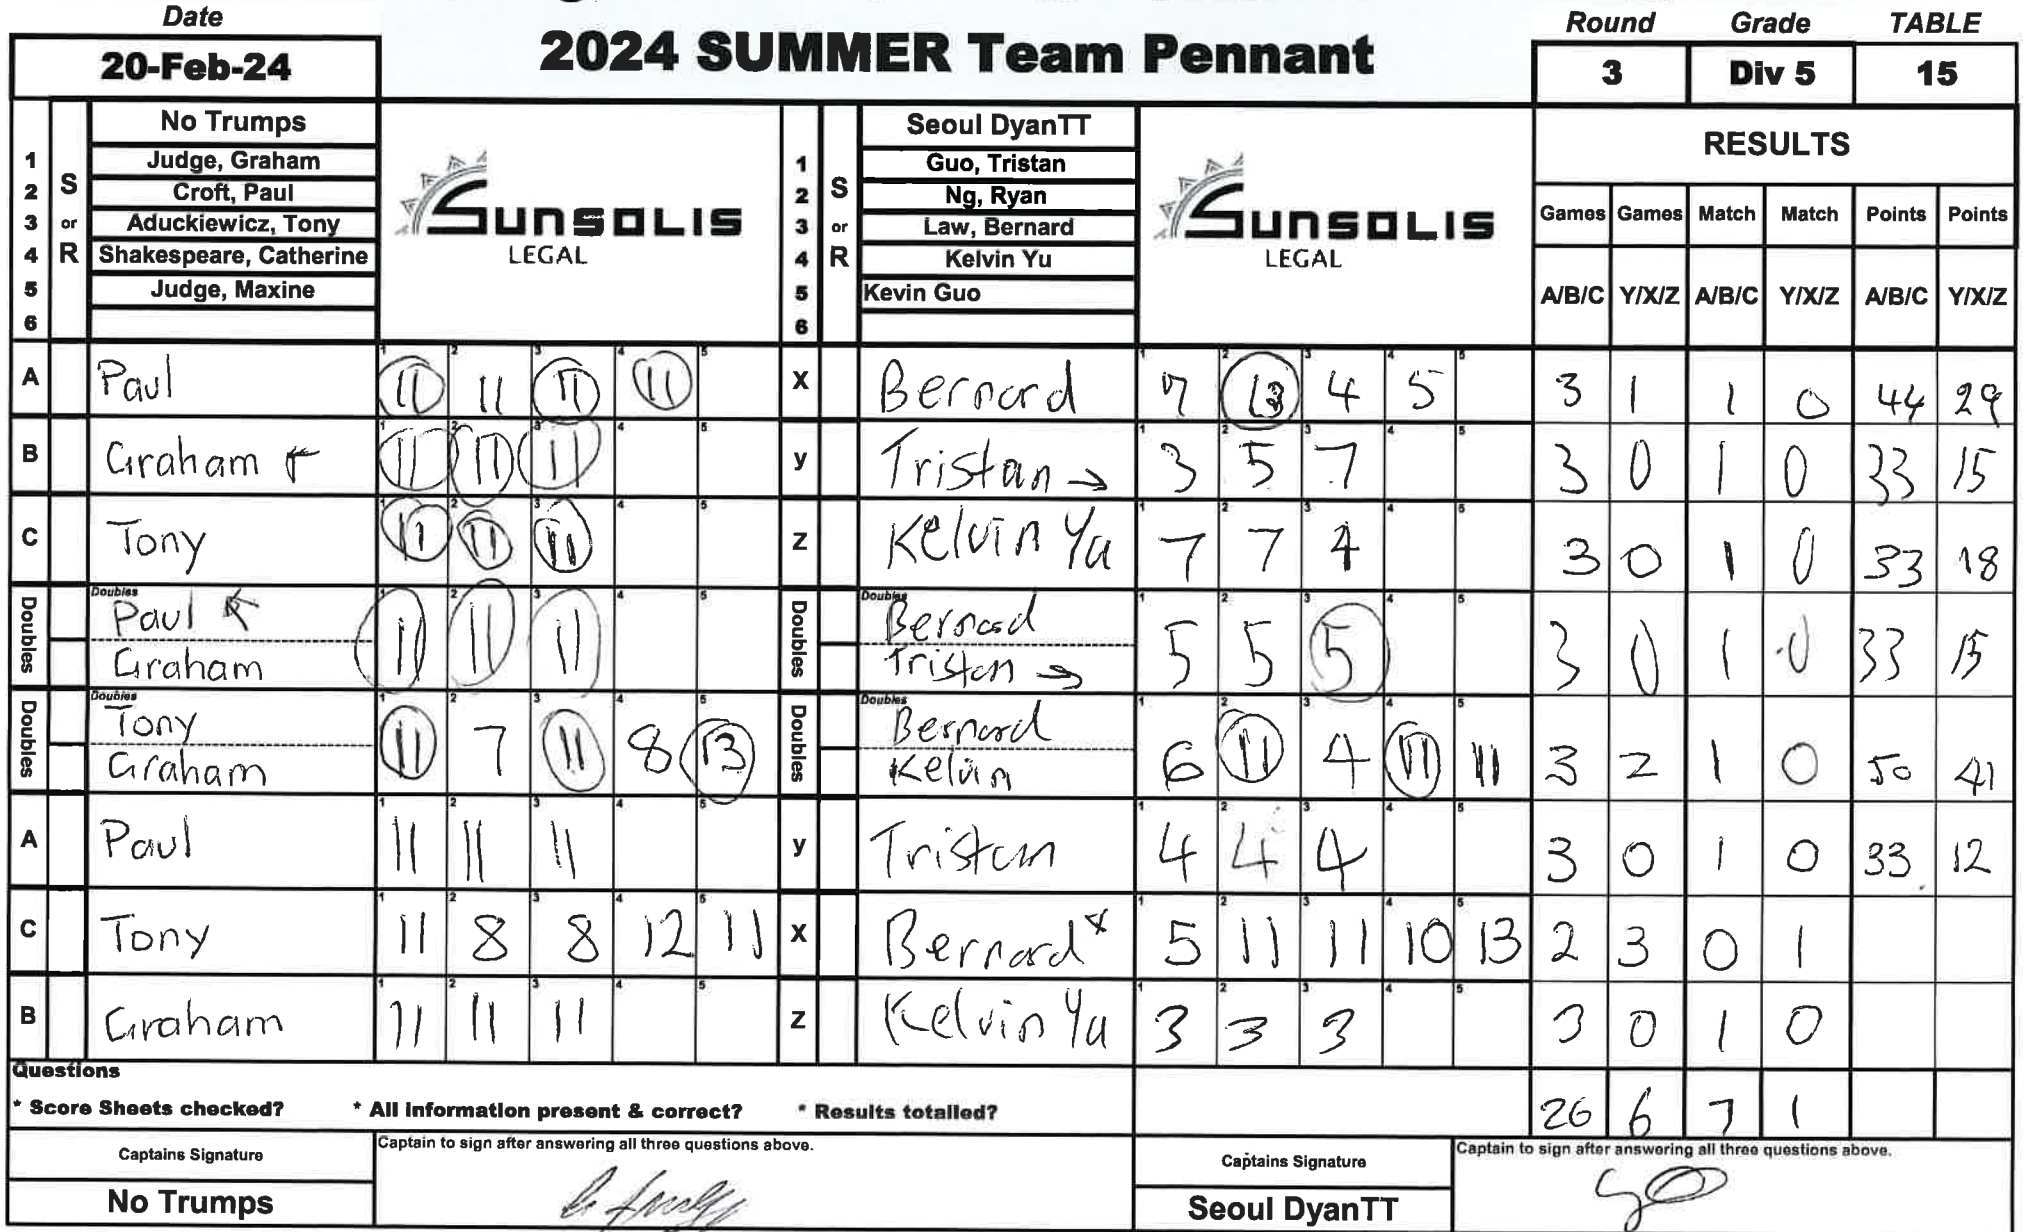 Date
20-Feb-24
2024 SUMMER Team Pennant
Round Grade TABLE
3 Div 5 15
S or R
No Trumps
1 Judge, Graham
2 Croft, Paul
3 Aduckiewicz, Tony
4 Shakespeare, Catherine
5 Judge, Maxine
6
SUNSOLIS
LEGAL
S or R
Seoul DyanTT
1 Guo, Tristan
2 Ng, Ryan
3 Law, Bernard
4 Kelvin Yu
5 Kevin Guo
6
SUNSOLIS
LEGAL
RESULTS
Games Games Match Match Points Points
A/B/C Y/X/Z A/B/C Y/X/Z A/B/C Y/X/Z
A Paul 11 11 11 11 X Bernard 7 13 4 5 3 1 1 0 44 29
B Graham 11 11 11 y Tristan 3 5 7 3 0 1 0 33 15
C Tony 11 11 11 Z Kelvin Yu 7 7 4 3 0 1 0 33 18
Doubles Paul Graham 11 11 11 Doubles Bernard Tristan 5 5 5 3 0 1 0 33 15
Doubles Tony Graham 11 7 11 8 13 Doubles Bernard Kelvin 6 11 4 11 11 3 2 1 0 50 41
A Paul 11 11 11 y Tristan 4 4 4 3 0 1 0 33 12
C Tony 11 8 8 12 11 X Bernard 5 11 11 10 13 2 3 0 1
B Graham 11 11 11 Z Kelvin Yu 3 3 3 3 0 1 0
Questions
* Score Sheets checked? * All information present & correct? * Results totalled?
26 6 7 1
Captains Signature
Captain to sign after answering all three questions above.
No Trumps
Captains Signature
Captain to sign after answering all three questions above.
Seoul DyanTT